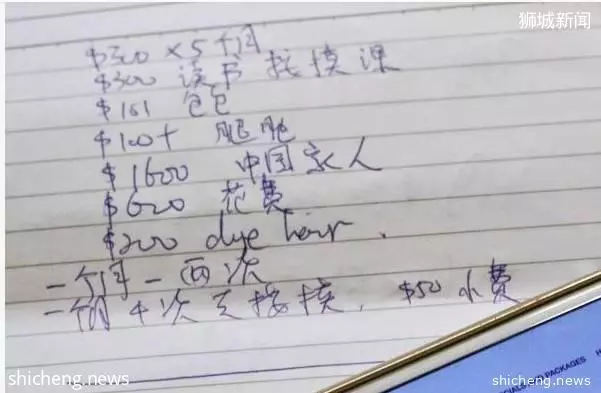 狮城新闻
$300 × 5 个月
$300 读书 按摩课
$161 包包
$100+ 肥肥
$1600 中国家人
$600 花费
$200 dye hair.
一个月一两次
一个月4次 按摩, $50 小费
CIALS AND PACKAGES H
shicheng.news
shicheng.news